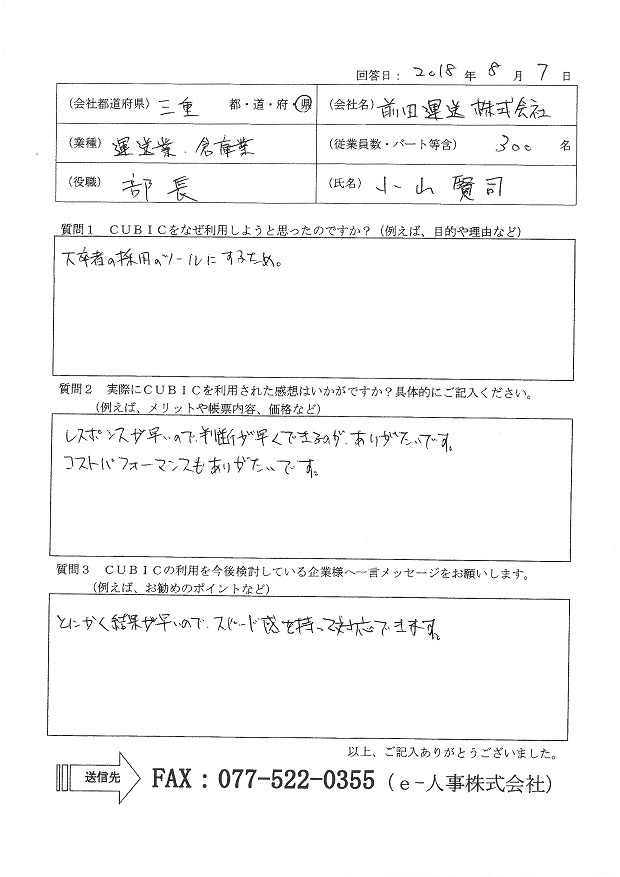 回答日： 2018 年 8 月 7 日
（会社都道府県）三重 都・道・府・県 （会社名）前田運送株式会社
（業種）運送業．倉庫業 （従業員数・パート等含） 300 名
（役職）部長 （氏名）小山賢司
質問１　ＣＵＢＩＣをなぜ利用しようと思ったのですか？（例えば、目的や理由など）
大卒者の採用のツールにするため。
質問２　実際にＣＵＢＩＣを利用された感想はいかがですか？具体的にご記入ください。
（例えば、メリットや帳票内容、価格など）
レスポンスが早いので、判断が早くできるのが、ありがたいです。
コストパフォーマンスもありがたいです。
質問３　ＣＵＢＩＣの利用を今後検討している企業様へ一言メッセージをお願いします。
（例えば、お勧めのポイントなど）
とにかく結果が早いので、スピード感を持って対応できます。
以上、ご記入ありがとうございました。
送信先 FAX：077-522-0355（ｅ-人事株式会社）